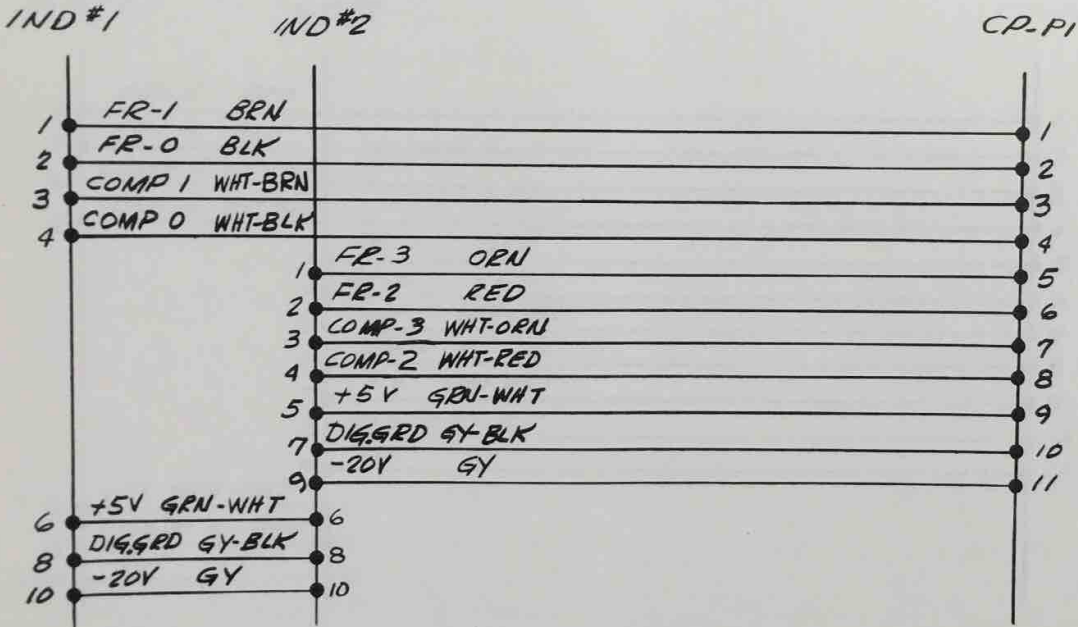 IND #1 IND #2 CP-P1
1 FR-1 BRN 1
2 FR-0 BLK 2
3 COMP 1 WHT-BRN 3
4 COMP 0 WHT-BLK 4
1 FR-3 ORN 5
2 FR-2 RED 6
3 COMP-3 WHT-ORN 7
4 COMP-2 WHT-RED 8
5 +5V GRN-WHT 9
7 DIG.GRD GY-BLK 10
9 -20V GY 11
6 +5V GRN-WHT 6
8 DIG.GRD GY-BLK 8
10 -20V GY 10